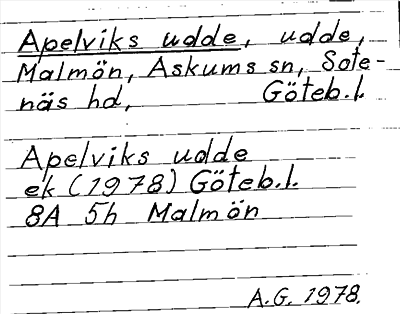 Apelviks udde, udde,
Malmön, Askums sn, Sote-
näs hd, Göteb.l.
Apelviks udde
ek (1978) Göteb.l.
8A 5h Malmön
A.G. 1978.